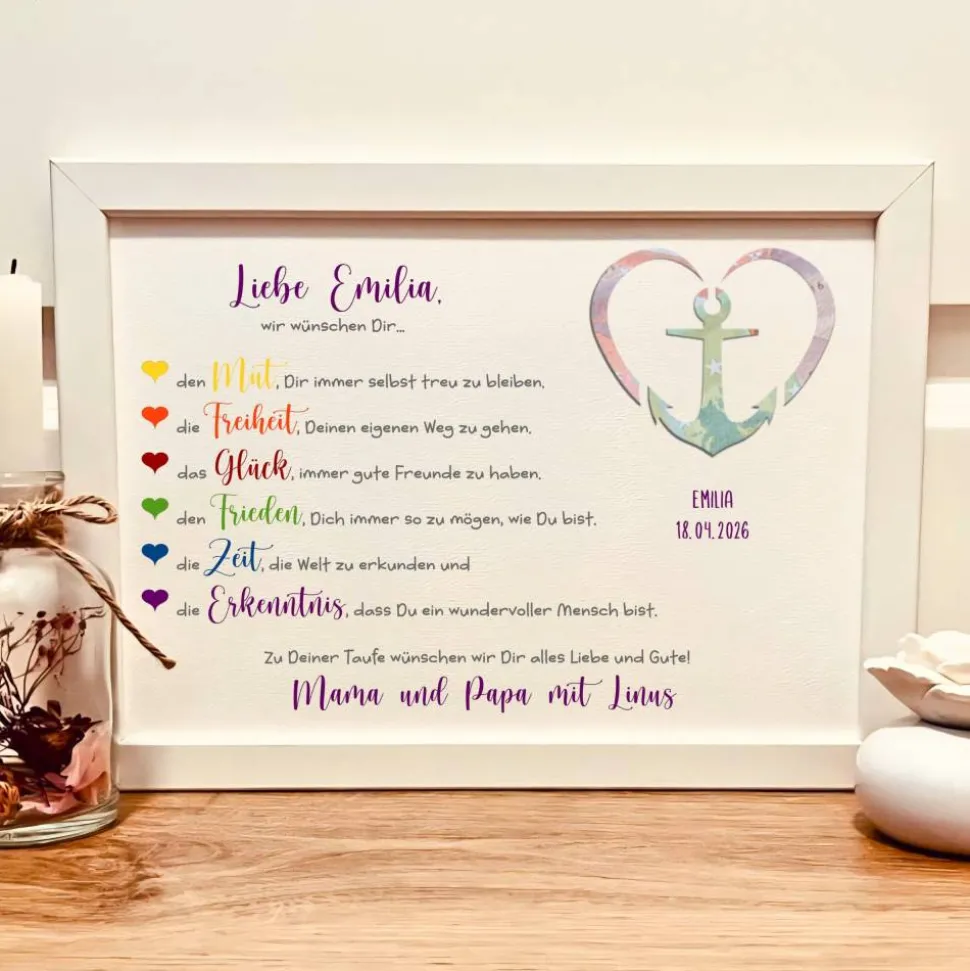 Liebe Emilia,
wir wünschen Dir...
den Mut, Dir immer selbst treu zu bleiben,
die Freiheit, Deinen eigenen Weg zu gehen,
das Glück, immer gute Freunde zu haben,
den Frieden, Dich immer so zu mögen, wie Du bist.
die Zeit, die Welt zu erkunden und
die Erkenntnis, dass Du ein wundervoller Mensch bist.
Zu Deiner Taufe wünschen wir Dir alles Liebe und Gute!
Mama und Papa mit Linus
EMILIA
18.04.2026